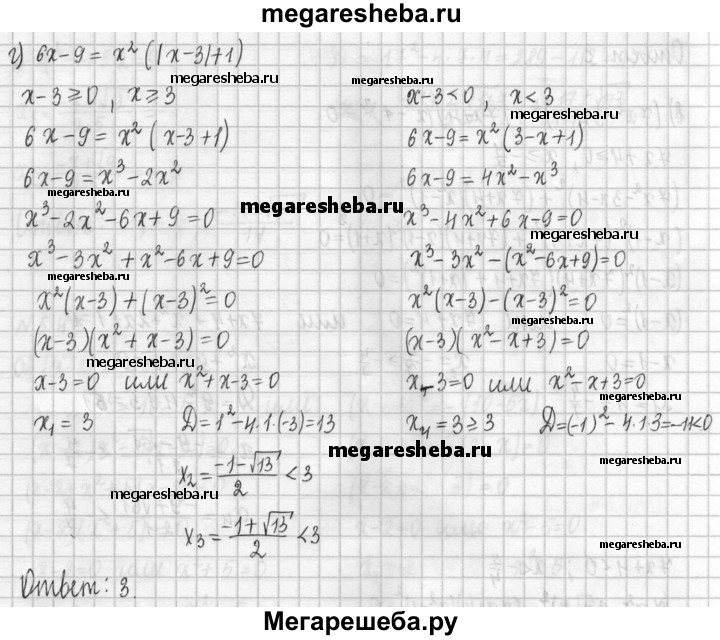 megaresheba.ru
г) 6x-9 = x² (|x-3|+1)
megaresheba.ru
megaresheba.ru
x-3≥0, x≥3
6x-9 = x² (x-3+1)
6x-9 = x³-2x²
megaresheba.ru
x³-2x²-6x+9=0
x³-3x²+x²-6x+9=0
megaresheba.ru
x²(x-3)+(x-3)²=0
(x-3)(x²+x-3)=0
megaresheba.ru
x-3=0 или x²+x-3=0
x₁=3 D=1²-4.1.(-3)=13
x₂ = (-1-√13)/2 <3
megaresheba.ru
x₃ = (-1+√13)/2 <3
x-3<0, x<3
6x-9=x²(3-x+1)
6x-9=4x²-x³
megaresheba.ru
x³-4x²+6x-9=0
megaresheba.ru
x³-3x²-(x²-6x+9)=0
x²(x-3)-(x-3)²=0
megaresheba.ru
(x-3)(x²-x+3)=0
x-3=0 или x²-x+3=0
megaresheba.ru
x₄=3≥3 D=(-1)²-4.1.3=-11<0
megaresheba.ru
megaresheba.ru
megaresheba.ru
Ответ: 3.
Мегарешеба.ру